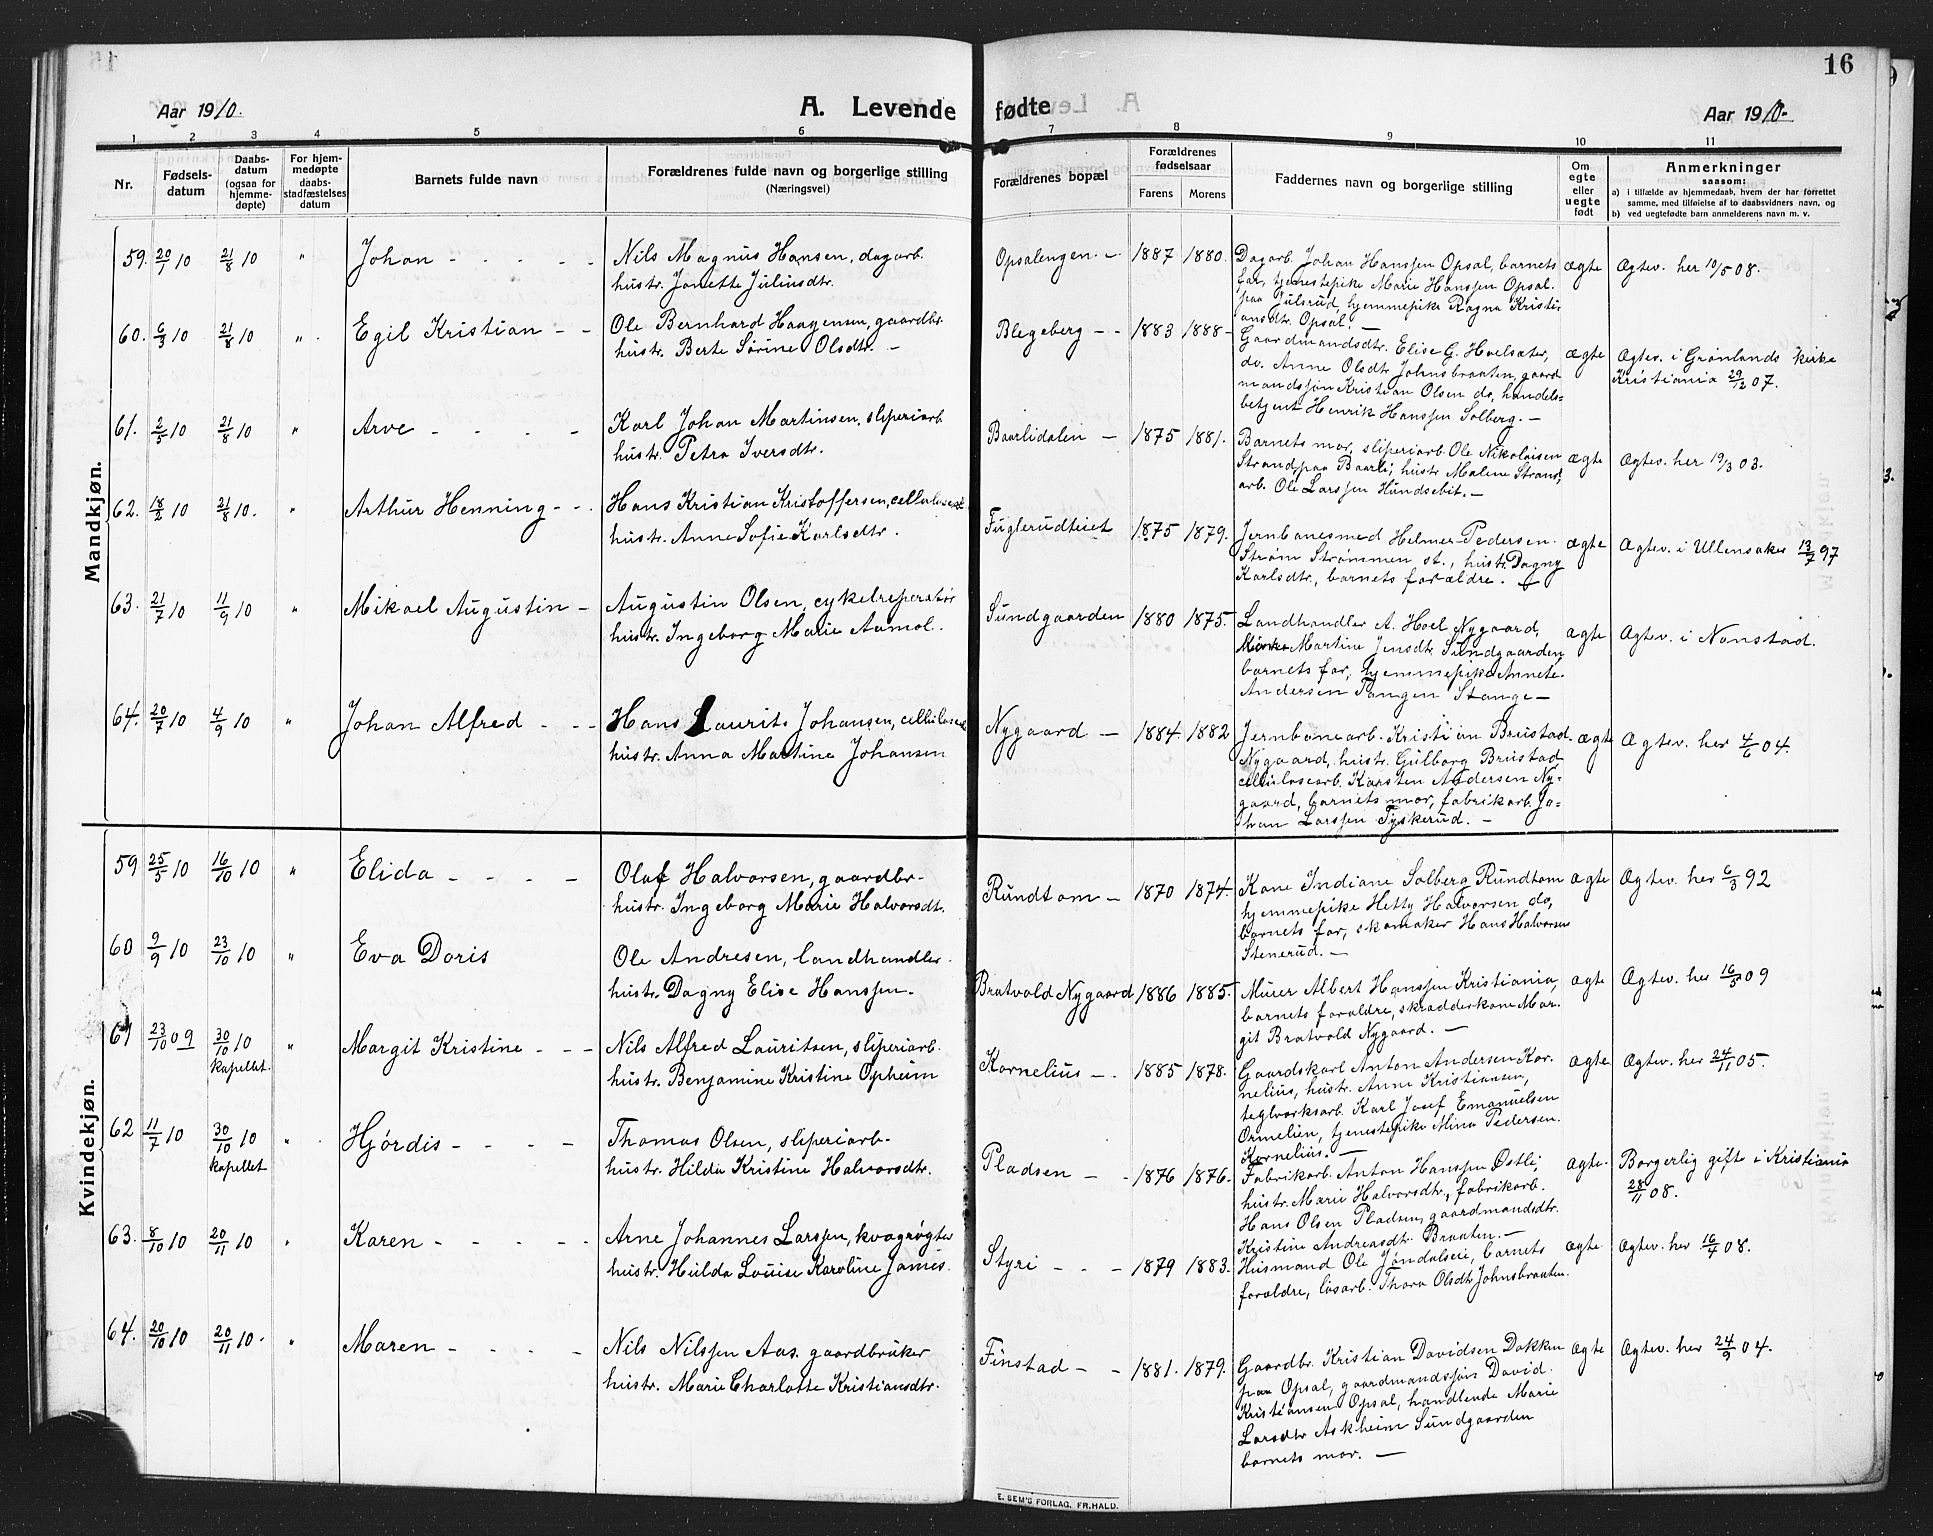 16
Aar 1910.
A. Levende fødte
Aar 1910.
1 2 3 4 5 6 7 8 9 10 11
Nr.
Fødsels-
datum
Daabs-
datum
(ogsaa for
hjemme-
døpte)
For hjem-
medøpte
daabs-
stadfæstelses
datum
Barnets fulde navn
Forældrenes fulde navn og borgerlige stilling
(Næringsvei)
Forældrenes bopæl
Forældrenes
fødselsaar
Farens Morens
Faddernes navn og borgerlige stilling
Om
egte
eller
uegte
født
Anmerkninger
saasom:
a) i tilfælde av hjemmedaab, hvem der har forrettet
samme, med tilføielse af to daabsvidners navn, og
b) ved uegtefødte barn anmelderens navn m. v.
Mandkjøn.
59. 20/1 10 21/8 10 " Johan - - - -
Nils Magnus Hansen, dagarb.
hustr. Janette Juliusdtr.
Opsalengen. - 1887 1880.
Dagarb. Johan Hanssen Opsal, barnets
far, tjenestepike Marie Hanssen Opsal
paa Julsrud, hjemmepike Ragna Kristi-
ansdtr. Opsal. -
ægte Ægtev. her 19/5 08.
60. 6/3 10 21/8 10 " Egil Kristian - -
Ole Bernhard Haagensen, gaardbr.
hustr. Berte Sørine Olsdtr. -
Blegeberg - - 1883 1888 -
Gaardmandsdtr. Elise G. Hoelsæter,
do. Anne Olsdtr Johnsbraaten, gaard
mandssøn Kristian Olsen do, handels-
betjent Henrik Hanssen Solberg. -
ægte Ægtev. i Grønlands kirke
Kristiania 29/12 07.
61. 2/5 10 21/8 10 " Arve - - - -
Karl Johan Martinsen, sliperiarb
hustr. Petra Iversdtr.
Baarlidalen - 1875 1881.
Barnets mor, sliperiarb. Ole Nikolaisen
Strand paa Baarli, hustr. Malene Strand,
arb. Ole Larssen Hundsebit. -
ægte Ægtev. her 19/3 03.
62. 18/2 10 21/8 10. " Arthur Henning - -
Hans Kristian Kristoffersen, cellulosearb
hustr. Anne Sofie Karlsdtr.
Fuglerudteiet 1875 1879.
Jernbanesmed Helmer Pedersen
Strøm Strømmen st., hustr. Dagny
Karlsdtr., barnets forældre. -
ægte Ægtev. i Ullensaker 13/7 97
63. 21/7 10 11/9 10 " Mikael Augustin -
Augustin Olsen, cykelreperatør
hustr. Ingeborg Marie Aamol.
Sundgaarden 1880 1875.
Landhandler A. Hoel Nygaard,
Martine Jensdtr Sundgaarden
barnets far, hjemmepike Annete
Andersen Tangen Stange -
ægte Ægtev. i Nanstad.
64. 20/7 10 4/9 10 " Johan Alfred - - -
Hans Laurits Johansen, cellulosearb
hustr. Anna Martine Johansen
Nygaard - 1884. 1882
Jernbanearb. Kristian Brustad
Nygaard, hustr. Gulborg Brustad
cellulosearb. Karsten Andersen Ny-
gaard, barnets mor, fabrikarb. Jo-
han Larssen Tyskerud. -
ægte Ægtev. her 4/6 04.
Kvindekjøn.
59 25/5 10 16/10 10 " Elida - - - -
Olaf Halvorsen, gaardbr.
hustr. Ingeborg Marie Halvorsdtr.
Rundtom - 1870 1874.
Kone Indiane Solberg Rundtom
hjemmepike Hetty Halvorsen do,
barnets far, skomaker Hans Halvorsen
Stenerud. -
ægte Ægtev. her 6/3 92
60 9/9 10 23/10 10 " Eva Doris
Ole Andresen, landhandler.
hustr. Dagny Elise Hanssen.
Bratvold Nygaard 1886 1885.
Murer Albert Hanssen Kristiania,
barnets forældre, skrædderkone Mar-
git Bratvold Nygaard. -
ægte Ægtev. her 16/5 09
61 23/10 09 30/10 10 kapellet. " Margit Kristine - - -
Nils Alfred Lauritsen, sliperiarb.
hustr. Benjamine Kristine Opheim
Kornelius - . 1885 1878.
Gaardskarl Anton Andersen Kor-
nelius, hustr. Anne Kristiansen,
teglverksarb. Karl Josef Emanuelsen
Ormelien, tjenestepike Mina Pedersen
Kornelius. -
ægte Ægtev. her 24/11 05.
62 11/7 10 30/10 10 kapellet " Hjørdis - - - -
Thomas Olsen, sliperiarb.
hustr. Hilda Kristine Halvorsdtr.
Pladsen - - 1876 1876.
Fabrikarb. Anton Hanssen Østli,
hustr. Marie Halvorsdtr., fabrikarb.
Hans Olsen Pladsen, gaardmandsdtr.
Kristine Andreasdtr. Braaten. -
ægte. Borgerlig gift i Kristiania
28/11 08.
63. 8/10 10 20/11 10 " Karen - - - - -
Arne Johannes Larssen, kvægrøgter
hustr. Hulda Louise Karoline James.
Styri - - - 1879 1883.
Husmand Ole Jøndalseie, barnets
forældre, løsarb. Thora Olsdtr Johnsbraaten.
ægte Ægtev. her 16/4 08.
64. 20/10 10 20/11 10. " Maren - - - -
Nils Nilssen Aas. gaardbruker
hustr. Marie Charlotte Kristiansdtr.
Finstad - - 1881. 1879.
Gaardbr. Kristian Davidsen Dokken
paa Opsal, gaardmandssøn David
Kristiansen Opsal, handlende Marie
Larsdtr Askheim Sundgaarden
barnets mor. -
ægte Ægtev. her 24/9 04.
E. SEM'S FORLAG, FR.HALD.